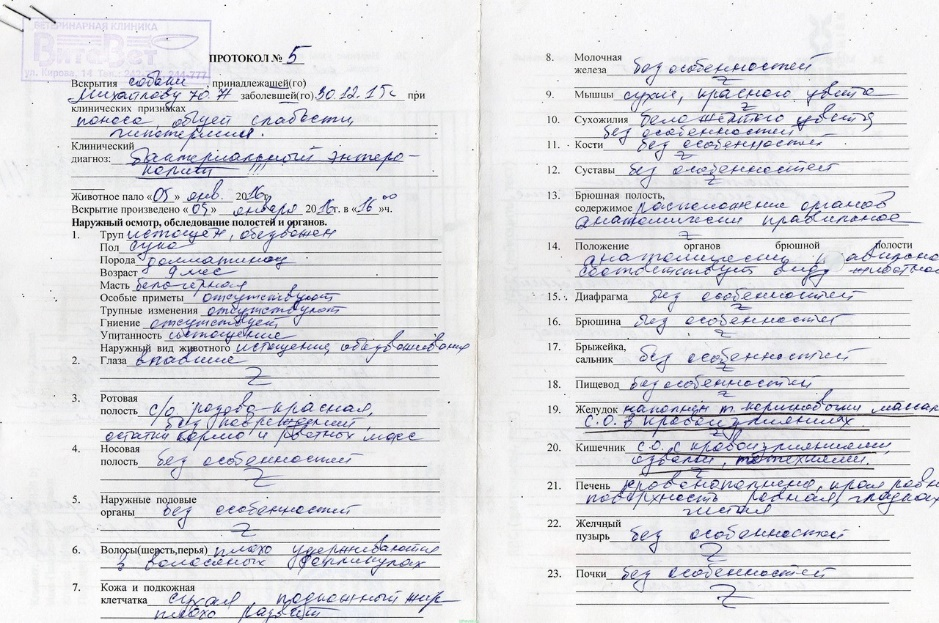 ВЕТЕРИНАРНАЯ КЛИНИКА
ВитаВет
ул. Кирова, 14
ПРОТОКОЛ № 5
Вскрытия собаки, принадлежащей(го)
Михайлову Ю. Н заболевшей(го) 30.12.15г при
клинических признаках
поноса, общей слабости,
гипотермия.
Клинический
диагноз: бактериальный энтеро-
колит !!!
Животное пало «05» янв. 2016г
Вскрытие произведено «05» января 2016г. в «16 00»ч.
Наружный осмотр, обследование полостей и органов.
1. Труп истощен, обезвожен
Пол сука
Порода далматинец
Возраст 9 мес
Масть бело-черная
Особые приметы отсутствуют
Трупные изменения отсутствуют
Гниение отсутствует
Упитанность истощение
Наружный вид животного истощение, обезвоживание
2. Глаза впавшие
3. Ротовая
полость с/о розово-красная,
без повреждений,
остатки корма и рвотных масс
4. Носовая
полость без особенностей
5. Наружные половые
органы без особенностей
6. Волосы(шерсть,перья) плохо удерживаются
в волосяных фолликулах
7. Кожа и подкожная
клетчатка сухая, подкожный жир
плохо развит
8. Молочная
железа без особенностей
9. Мышцы сухие, красного цвета
10. Сухожилия бело-желтого цвета,
без особенностей
11. Кости без особенностей
12. Суставы без особенностей
13. Брюшная полость,
содержимое расположение органов
анатомически правильное
14. Положение органов брюшной полости
анатомически
соответствует виду животного
15. Диафрагма без особенностей
16. Брюшина без особенностей
17. Брыжейка,
сальник без особенностей
18. Пищевод без особенностей
19. Желудок наполнен т. коричневыми массами
С.О. в кровоизлияниях
20. Кишечник С.О. с кровоизлияниями
язвами,
21. Печень кровенаполнена, края ровные
поверхность ровная, гладкая
чистая
22. Желчный
пузырь без особенностей
23. Почки без особенностей